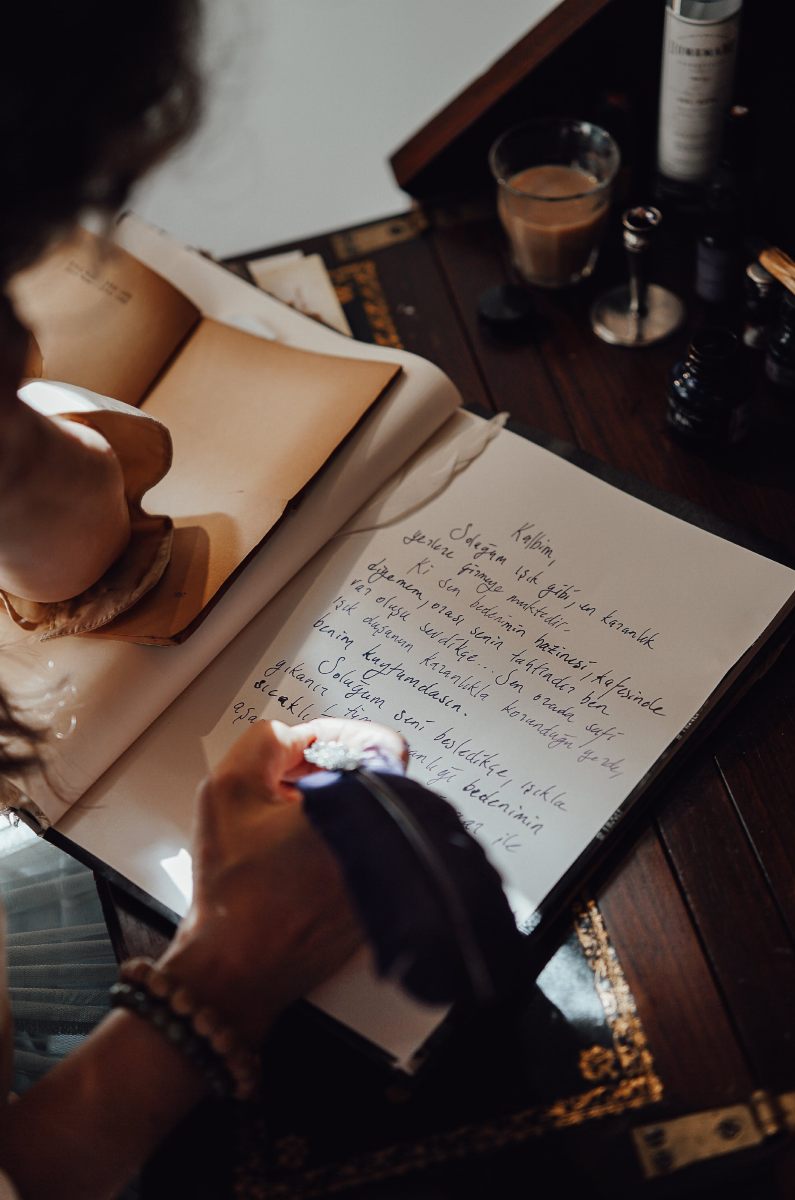 Kalbim,
Soluğum ışık gibi, en karanlık
yerlere girmeye muktedir.
Ki sen bedenimin hazinesi, kafesinde
diyemem, orası senin tahtındır ben
var oluşu sevdikçe... Sen orada safi
ışık karanlıkla korunduğu yerde,
benim kuytumdasın.
Soluğum seni besledikçe, ışıkla
yıkanır tüm bedenimin
ile